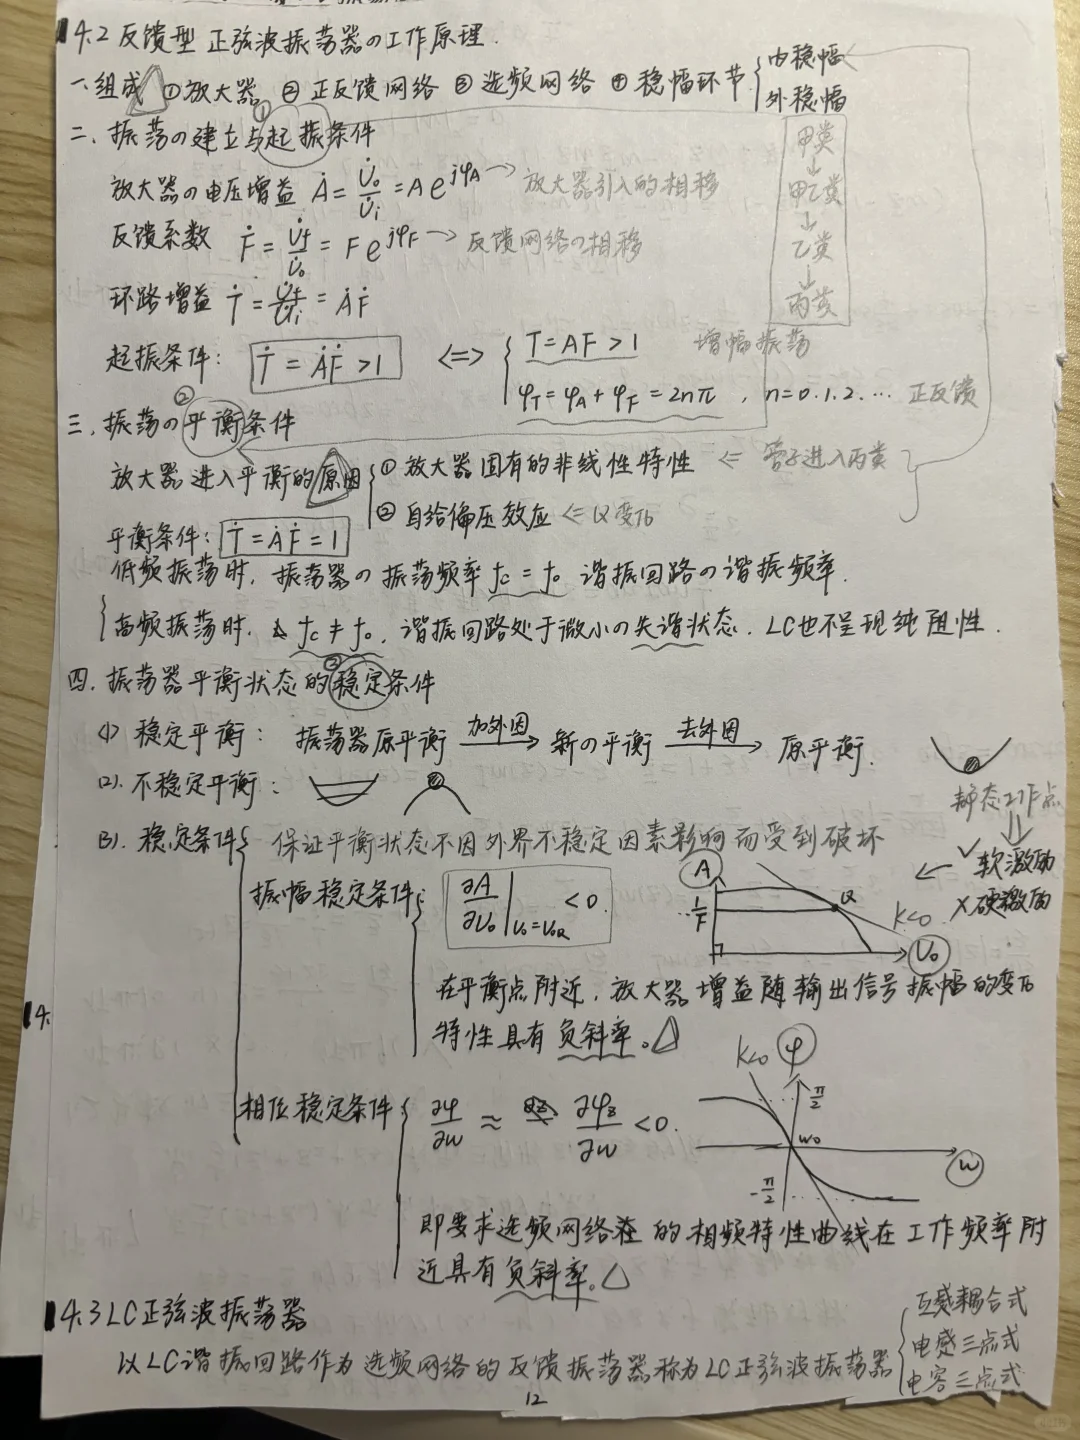 4.2 反馈型 正弦波振荡器の工作原理.
一、组成 ①放大器 ②正反馈网络 ③选频网络 ④稳幅环节 { 内稳幅
外稳幅
二、振荡の建立与起振条件 ①
甲类
↓
甲乙类
↓
乙类
↓
丙类
放大器の电压增益 Ȧ = U̇o/U̇i = A e^{jφA} → 放大器引入的相移
反馈系数 Ḟ = U̇f/U̇o = F e^{jφF} → 反馈网络の相移
环路增益 Ṫ = U̇f/U̇i = ȦḞ
起振条件: Ṫ = ȦḞ > 1 <=> { T = AF > 1 增幅振荡
φT = φA + φF = 2nπ , n=0.1.2.… 正反馈
三、振荡の平衡条件 ②
放大器进入平衡的原因 { ① 放大器固有的非线性特性 <= 管子进入丙类
② 自给偏压效应 <= Q变化
平衡条件: Ṫ = ȦḞ = 1
低频振荡时, 振荡器の振荡频率 fc = fo 谐振回路の谐振频率.
高频振荡时, fc ≠ fo, 谐振回路处于微小の失谐状态. LC也不呈现纯阻性.
四. 振荡器平衡状态的稳定条件 ③
(1) 稳定平衡: 振荡器原平衡 加外因→ 新の平衡 去外因→ 原平衡.
(2). 不稳定平衡:
静态工作点
⇓
✓软激励
×硬激励
(3). 稳定条件 { 保证平衡状态不因外界不稳定因素影响而受到破坏 ←
振幅稳定条件: { ∂A/∂Uo |Uo=UoQ < 0.
A 1/F Q k<0 Uo
在平衡点附近, 放大器增益随输出信号振幅的变化
特性具有负斜率。△
相位稳定条件 { ∂φ/∂w ≈ ∂φz/∂w < 0.
k<0 φ π/2 w0 w -π/2
即要求选频网络 的相频特性曲线在工作频率附
近具有负斜率。△
4.3 LC正弦波振荡器
以LC谐振回路作为选频网络的反馈振荡器称为LC正弦波振荡器 { 互感耦合式
电感三点式
电容三点式
12
14.